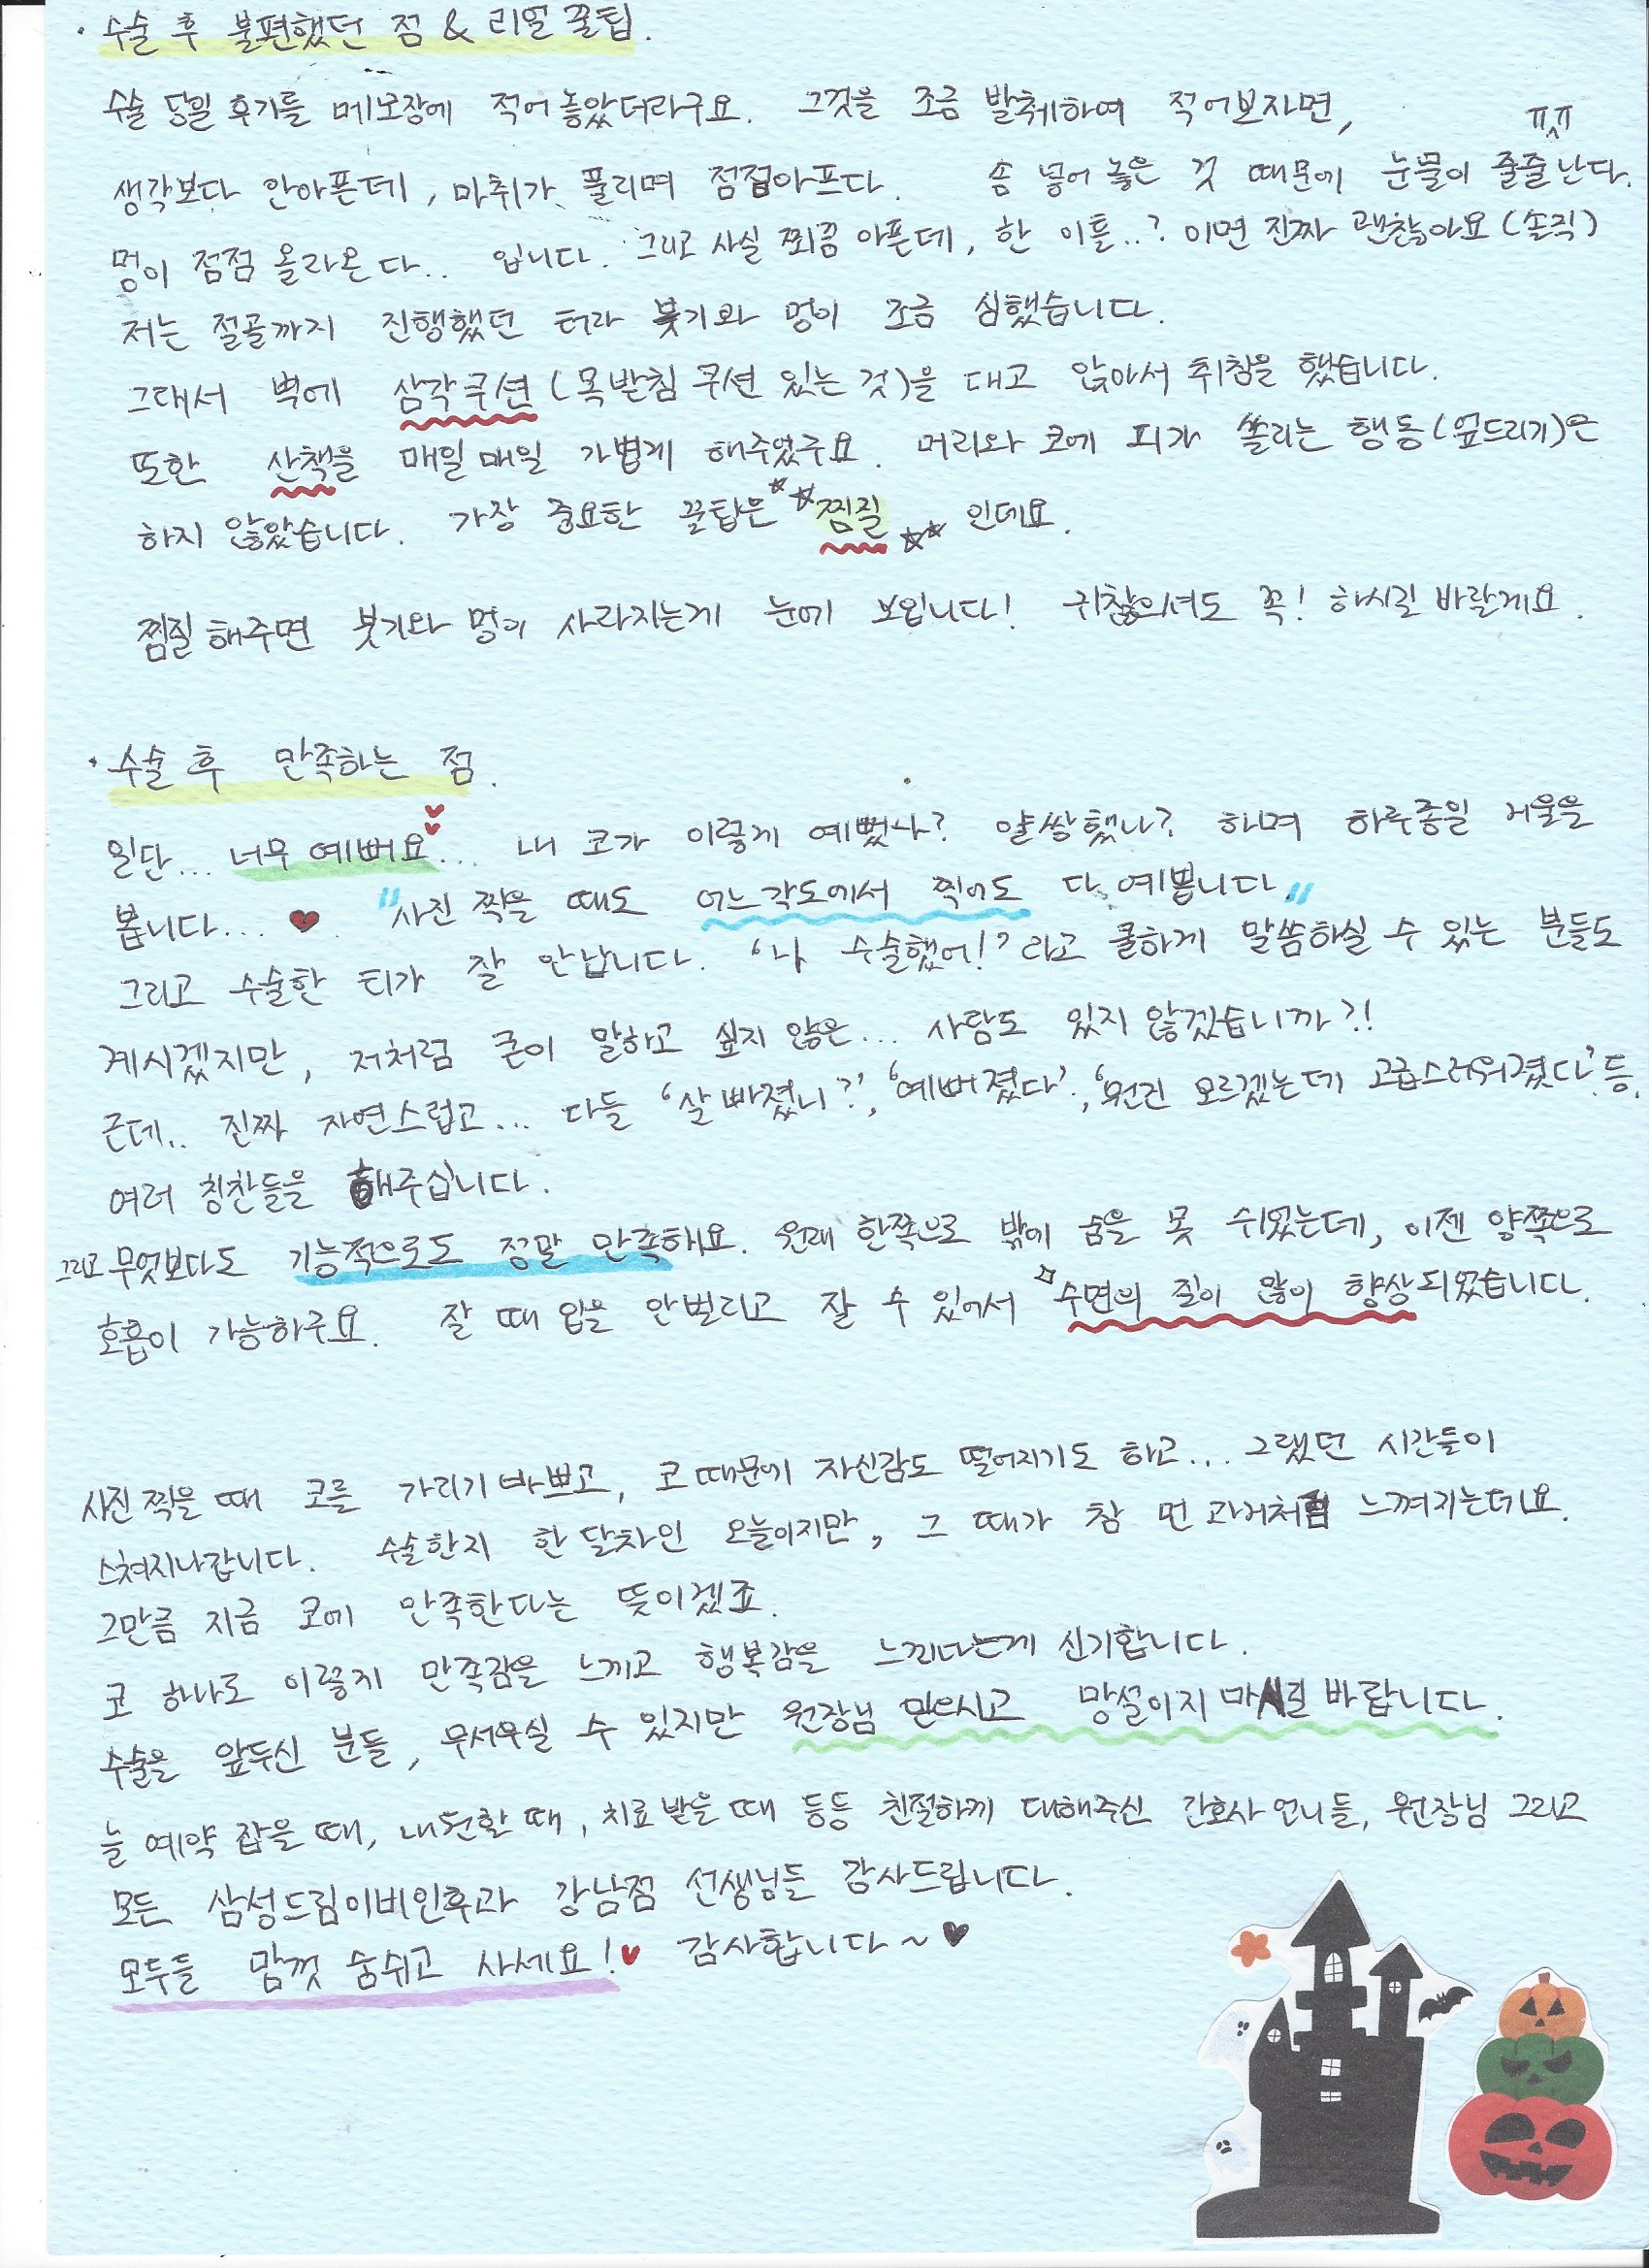 · 수술 후 불편했던 점 & 리얼 꿀팁.
수술 당일 후기를 메모장에 적어 놓았더라구요. 그것을 조금 발췌하여 적어보자면,
생각보다 안아픈데, 마취가 풀리며 점점아프다. 솜 넣어 놓은 것 때문에 눈물이 줄줄난다. ㅠ^ㅠ
멍이 점점 올라온다.. 입니다. 그리고 사실 찌끔 아픈데, 한 이틀..? 이면 진짜 괜찮아요(솔직)
저는 절골까지 진행했던 터라 붓기와 멍이 조금 심했습니다.
그래서 벽에 삼각쿠션(목받침 쿠션 있는 것)을 대고 앉아서 취침을 했습니다.
또한 산책을 매일매일 가볍게 해주었구요. 머리와 코에 피가 쏠리는 행동(엎드리기)은
하지 않았습니다. 가장 중요한 꿀팁은 ☆☆찜질☆☆ 인데요.
찜질해주면 붓기와 멍이 사라지는게 눈에 보입니다! 귀찮으셔도 꼭! 하시길 바랄게요.
· 수술 후 만족하는 점.
일단... 너무 예뻐요♥♥... 내 코가 이렇게 예뻤나? 얄쌍했나? 하며 하루종일 거울을
봅니다... ♥ "사진 찍을 때도 어느각도에서 찍어도 다 예쁩니다"
그리고 수술한 티가 잘 안납니다. '나 수술했어!' 라고 쿨하게 말씀하실 수 있는 분들도
계시겠지만, 저처럼 굳이 말하고 싶지 않은... 사람도 있지 않겠습니까?!
근데.. 진짜 자연스럽고... 다들 '살 빠졌니?', '예뻐졌다', '뭔진 모르겠는데 고급스러워졌다' 등.
여러 칭찬들을 해주십니다.
그리고 무엇보다도 기능적으로도 정말 만족해요. 원래 한쪽으로 밖에 숨을 못 쉬었는데, 이젠 양쪽으로
호흡이 가능하구요. 잘 때 입을 안벌리고 잘 수 있어서 수면의 질이 많이 향상되었습니다.
사진 찍을 때 코를 가리기 바쁘고, 코 때문에 자신감도 떨어지기도 하고... 그랬던 시간들이
스쳐지나갑니다. 수술한지 한 달차인 오늘이지만, 그 때가 참 먼 과거처럼 느껴지는데요.
그만큼 지금 코에 만족한다는 뜻이겠죠.
코 하나로 이렇게 만족감을 느끼고 행복감을 느끼다는게 신기합니다.
수술을 앞두신 분들, 무서우실 수 있지만 원장님 믿으시고 망설이지 마시길 바랍니다.
늘 예약 잡을 때, 내원할 때, 치료 받을 때 등등 친절하게 대해주신 간호사 언니들, 원장님 그리고
모든 삼성드림이비인후과 강남점 선생님들 감사드립니다.
모두들 맘껏 숨쉬고 사세요!♥ 감사합니다~♥